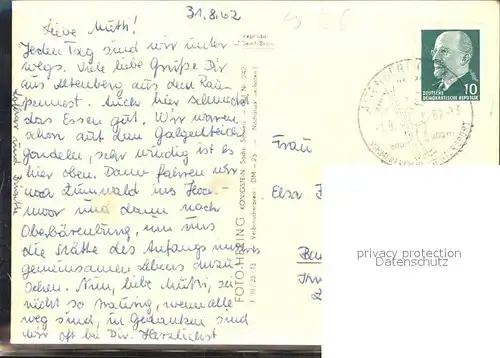 31.8.62
Liebe Mutti!
Jeden Tag sind wir unter
wegs. Viele liebe Grüße Dir
aus Altenberg aus dem Rau-
pennest. Auch hier schmeckt
das Essen gut. Wir waren
schon auf dem Galgenteich
gondeln, sehr windig ist es
hier oben. Dann fahren wir
nach Zinnwald ins Hoch-
moor und dann nach
Oberbärenburg, um uns
die Stätte des Anfangs unseres
gemeinsamen Lebens anzu
sehen. Nun, liebe Mutti, sei
nicht so traurig, wenn alle
weg sind, in Gedanken sind
wir oft bei Dir. Herzlichst
FOTO-HERING KÖNIGSTEIN, Sächs. Schweiz Nr. 242
Verbraucherpreis DM -.25 Nachdruck verboten!
10
DEUTSCHE
DEMOKRATISCHE REPUBLIK
Frau
Elsa
privacy protection
Datenschutz